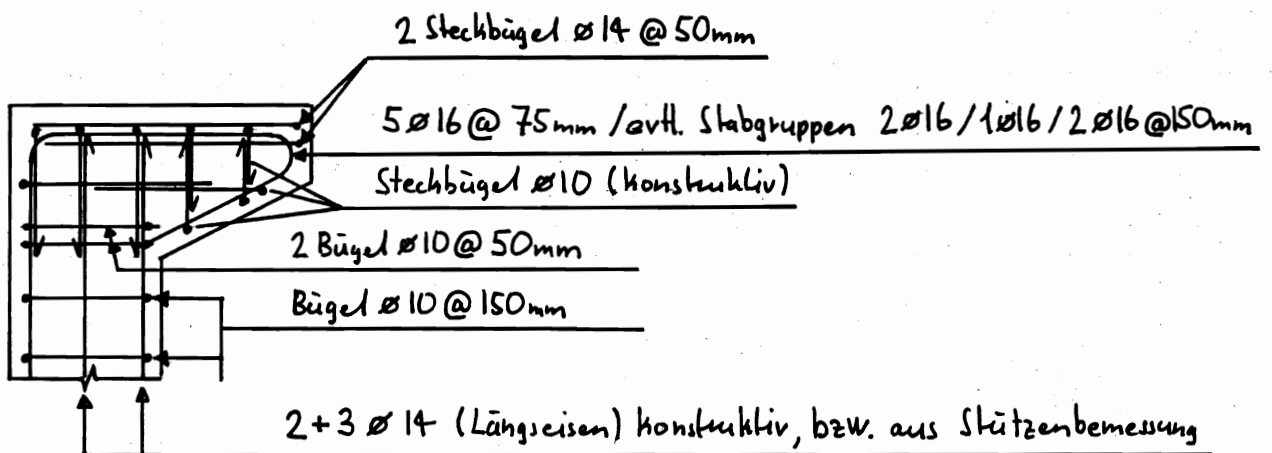 2 Steckbügel ø 14 @ 50mm
5 ø 16 @ 75mm / evtl. Stabgruppen 2ø16 / 1ø16 / 2ø16 @150mm
Steckbügel ø10 (konstruktiv)
2 Bügel ø10 @ 50mm
Bügel ø 10 @ 150mm
2+3 ø 14 (Längseisen) konstruktiv, bzw. aus Stützenbemessung